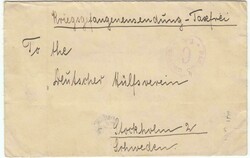 Kriegsgefangenensendung - Taxfrei
To the
Deutscher Hülfsverein
Stockholm 2
Schweden